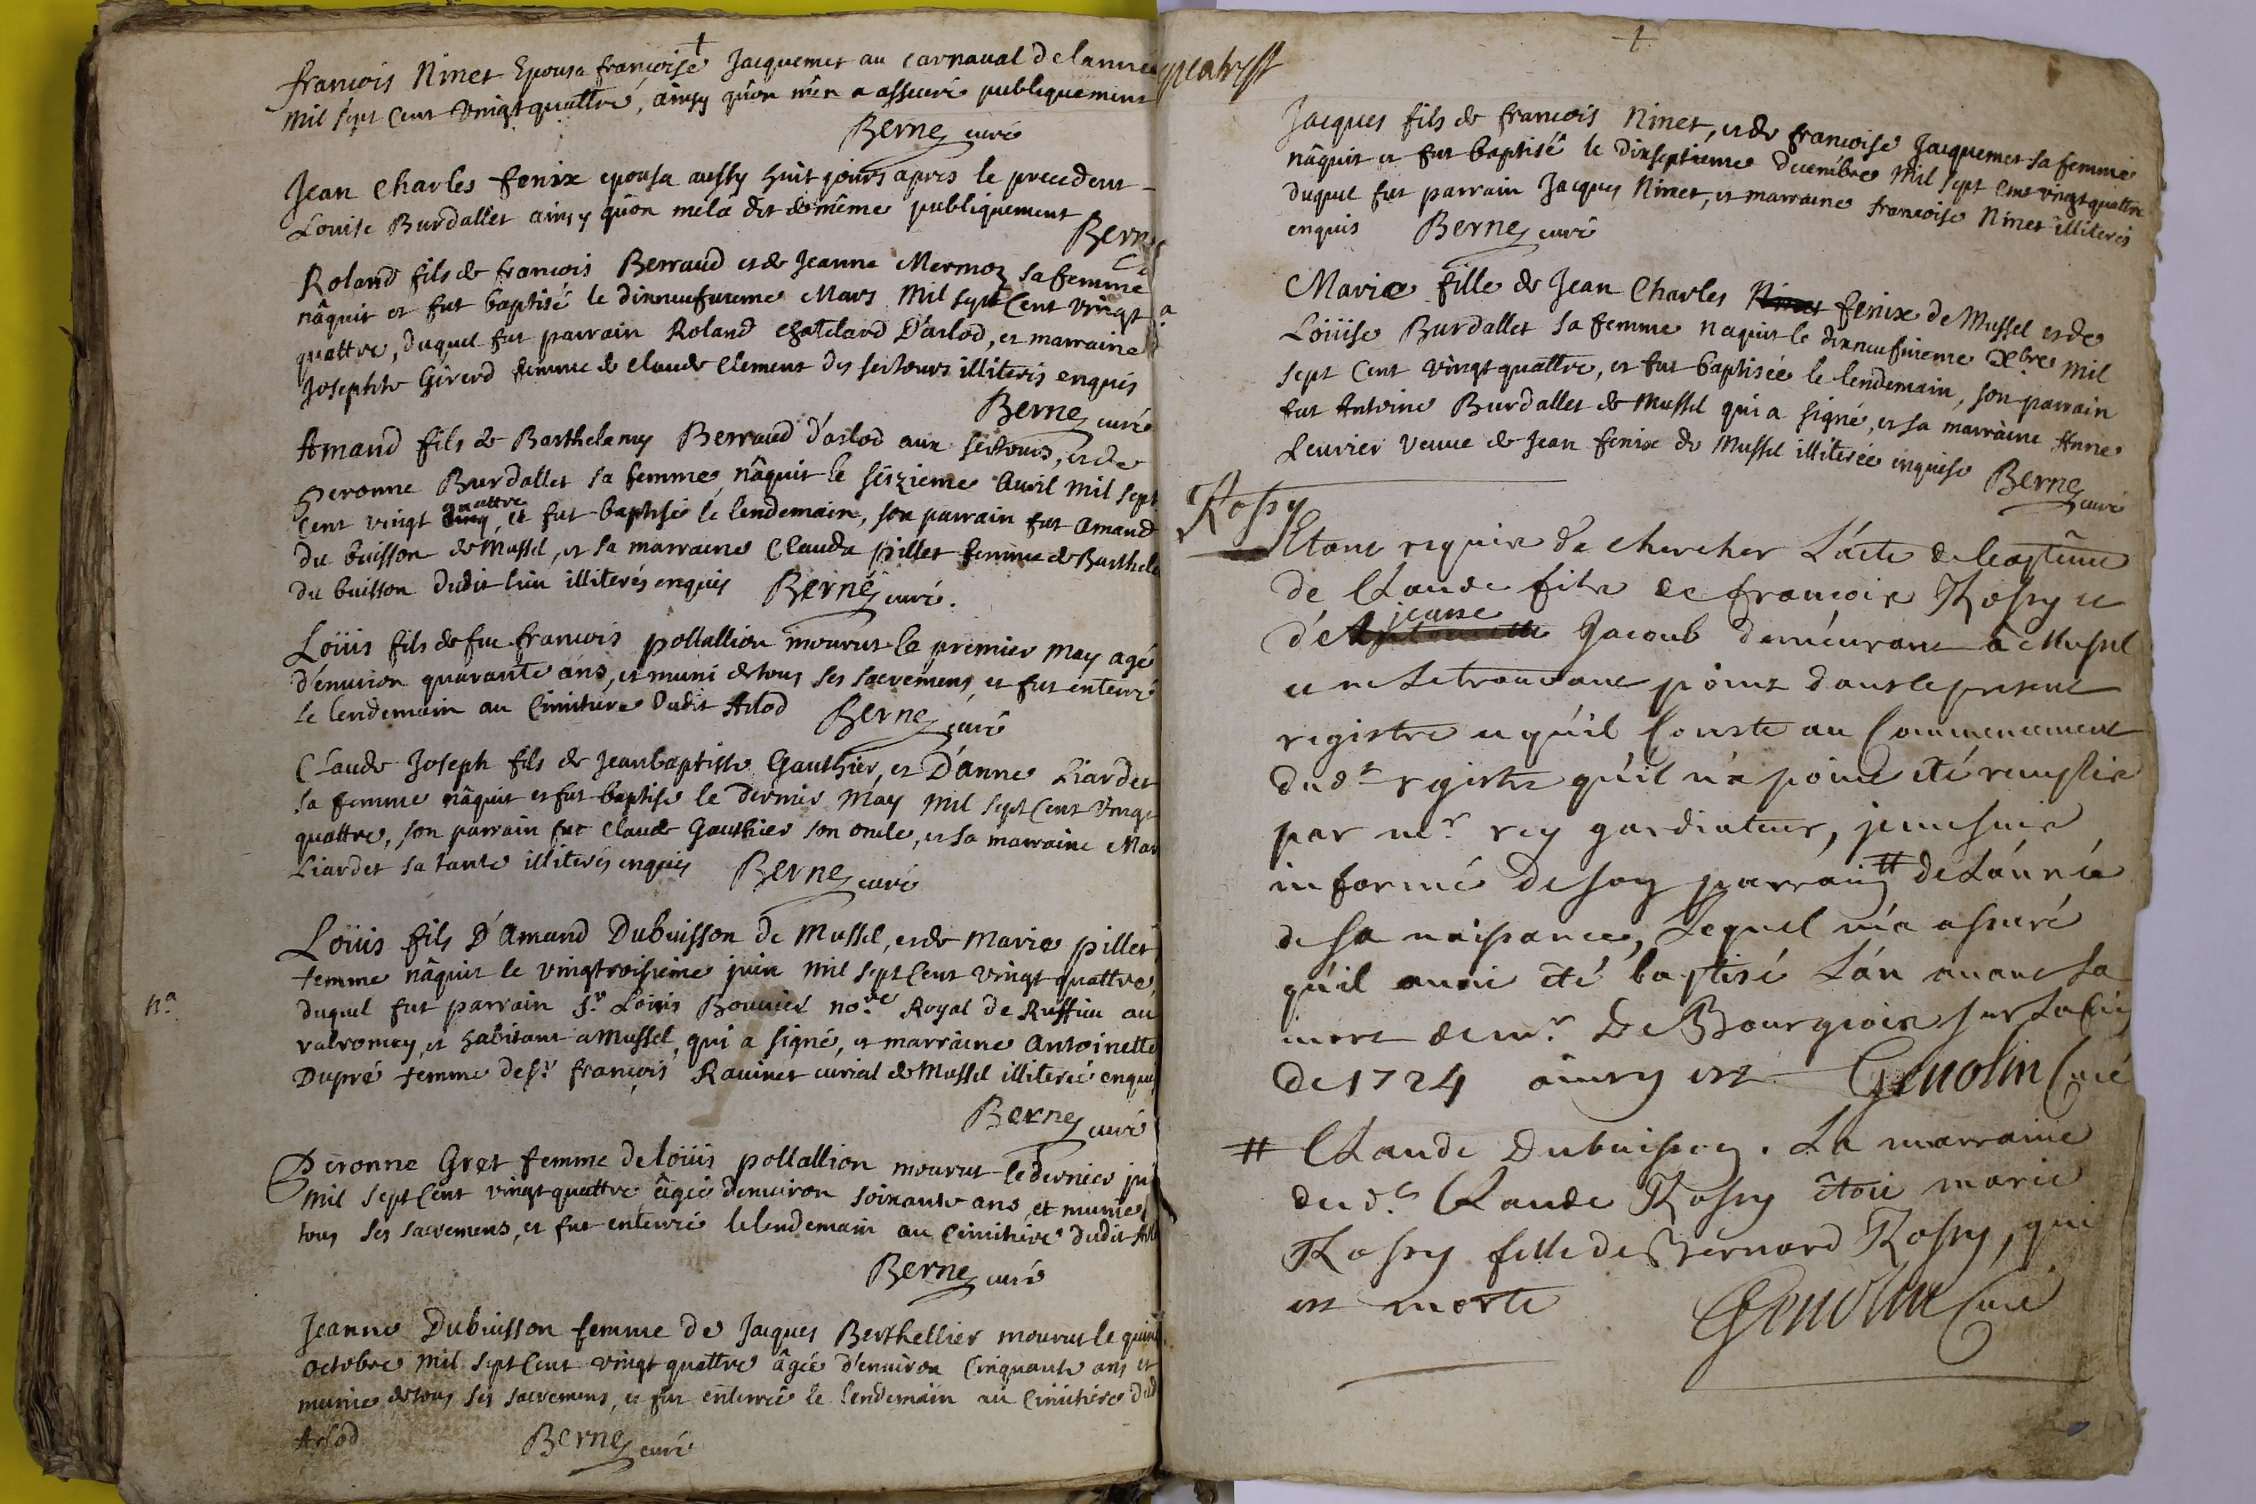 +
françois Ninet Epousa françoise Jacquemet au carnaval de lannee
mil sept cent vingt quattre, ainsy qu'on m'en a assuré publiquement
Berne curé
Jean Charles fenix epousa aussy huit jours apres le precedent
Louise Burdallet ainsy qu'on me la dit de même publiquement
Berne
Roland fils de françois Berraud et de Jeanne Mermoz sa femme
nâquit et fut baptisé le dixneufvieme Mars mil sept cent vingt
quattre, duquel fut parrain Roland Chatelard D'arlod, et marraine
Josephte Girerd femme de claude Clement des sertours illiterés enquis
Berne curé
Amand fils de Barthelamy Berraud d'arlod aux sertours, et de
Peronne Burdallet sa femme, nâquit le seizieme Auril mil sept
cent vingt quattre, et fut baptisé le lendemain, son parrain fut amand
du buisson de Mussel, et sa marraine Clauda pillet femme de Barthele
du buisson dudit lieu illiterés enquis Berne curé.
Loüis fils de feu françois pollallion mourut le premier may agé
d'enuiron quarante ans, et muni de tous ses sacremens, et fut enterré
le lendemain au Cimitiere dudit Arlod Berne curé
Claude Joseph fils de Jeanbaptiste Gauthier, et D'anne Liardet
sa femme nâquit et fut baptisé le dernier May mil sept cent vingt
quattre, son parrain fut Claude Gauthier son oncle, et sa marraine Mar
Liardet sa tante illiterés enquis Berne curé
Loüis fils D'Amand Dubuisson de Mussel, et de Marie pillet
femme nâquit le vingtroisieme juin mil sept cent vingt quattre,
nᵃ duquel fut parrain Sʳ Loüis Bouuier noʳᵉ Royal de Ruffieu au
valromey, et habitant a Mussel, qui a signé, et marraine Antoinette
Dupré femme de Sʳ françois Rauinet curial de Mussel illiterée enqui
Berne curé
Peronne Gret femme de loüis pollallion mourut le dernier jui
mil sept cent vingt quattre âgée d'enuiron soixante ans et munie
tous ses sacremens, et fut enterrée le lendemain au cimitiere dudit Arl
Berne curé
Jeanne Dubuisson femme de Jacques Berthellier mourut le quinz
octobre mil sept cent vingt quattre âgée d'enuiron cinquante ans et
munie de tous ses sacremens, et fut enterrée le lendemain au Cimitiere dud
Arlod Berne curé
+
Jacques fils de françois Ninet, et de françoise Jacquemet sa femme
nâquit et fut baptisé le dixseptieme decembre mil sept cent vingt quattre
duquel fut parrain Jacques Ninet, et marraine françoise Ninet illiterés
enquis Berne curé
Marie fille de Jean Charles Ninet fenix de Mussel et de
Loüise Burdallet sa femme naquit le dixneufvieme Xbre mil
sept cent vingt quattre, et fut baptisée le lendemain, son parrain
fut Antoine Burdallet de Mussel qui a signé, et sa marraine Anne
Leurier veuue de Jean fenix de Mussel illiterée enquise Berne
curé
Rossy
Etant requis de chercher L'acte de baptême
de Claude fils de francois Rossy et
d'e jeanne Jacoub demeurant a Mussel
et ne se trouvant point dans le present
registre et qu'il Conste au Commencement
du dᵗ registre qu'il n'a point été remplis
par mʳ rey gardiateur, je me suis
informé de soy parrain # de L'année
de sa naissance, Lequel m'a assuré
qu'il auoi été baptisé L'an auant la
mort de mʳ De Bourgeois sur la fin
de 1724 ainsy est Genolin Curé
# Claude Dubuisson. La marraine
du dᵗ Claude Rossy étoit marie
Rossy fille de Bernard Rossy, qui
est morte Genolin Curé